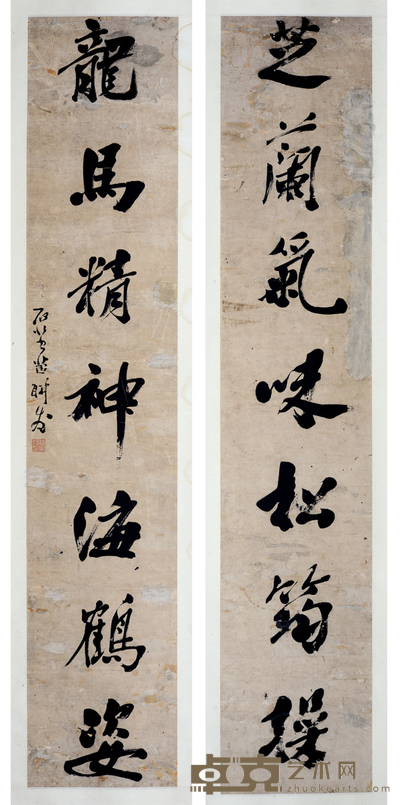 芝蘭氣味松筠操
龍馬精神海鶴姿
卓克艺术网
zhuokearts.com